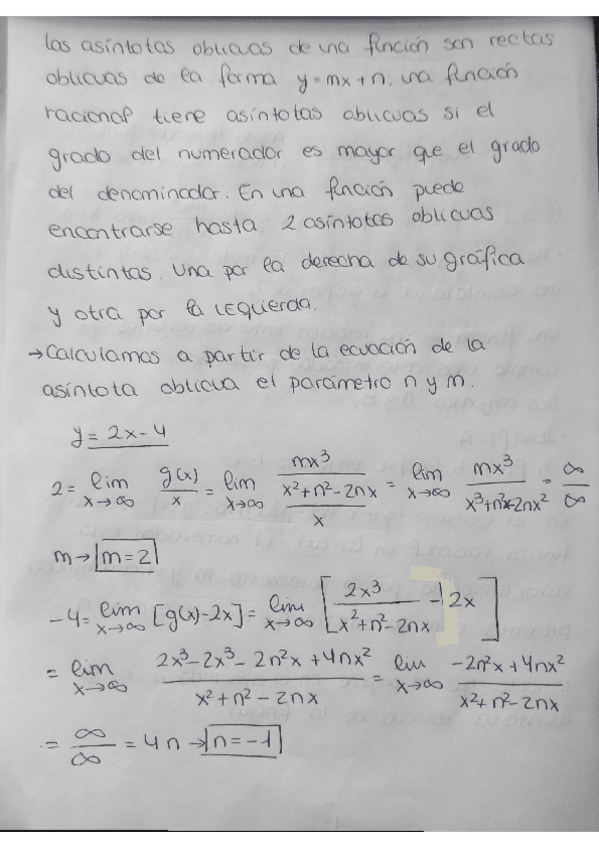 las asíntotas oblicuas de una función son rectas
oblicuas de la forma y=mx+n. una función
racional tiene asíntotas oblicuas si el
grado del numerador es mayor que el grado
del denominador. En una función puede
encontrarse hasta 2 asíntotas oblicuas
distintas. Una por la derecha de su gráfica
y otra por la izquierda.
→ Calculamos a partir de la ecuación de la
asíntota oblicua el parámetro n y m.
y = 2x-4
2 = lim x→∞ g(x)/x = lim x→∞ (mx³/(x²+n²-2nx))/x = lim x→∞ mx³/(x³+n²x-2nx²) = ∞/∞
m → m=2
-4 = lim x→∞ [g(x)-2x] = lim x→∞ [2x³/(x²+n²-2nx) - 2x]
= lim x→∞ (2x³-2x³-2n²x+4nx²)/(x²+n²-2nx) = lim x→∞ (-2n²x+4nx²)/(x²+n²-2nx)
= ∞/∞ = 4n → n=-1